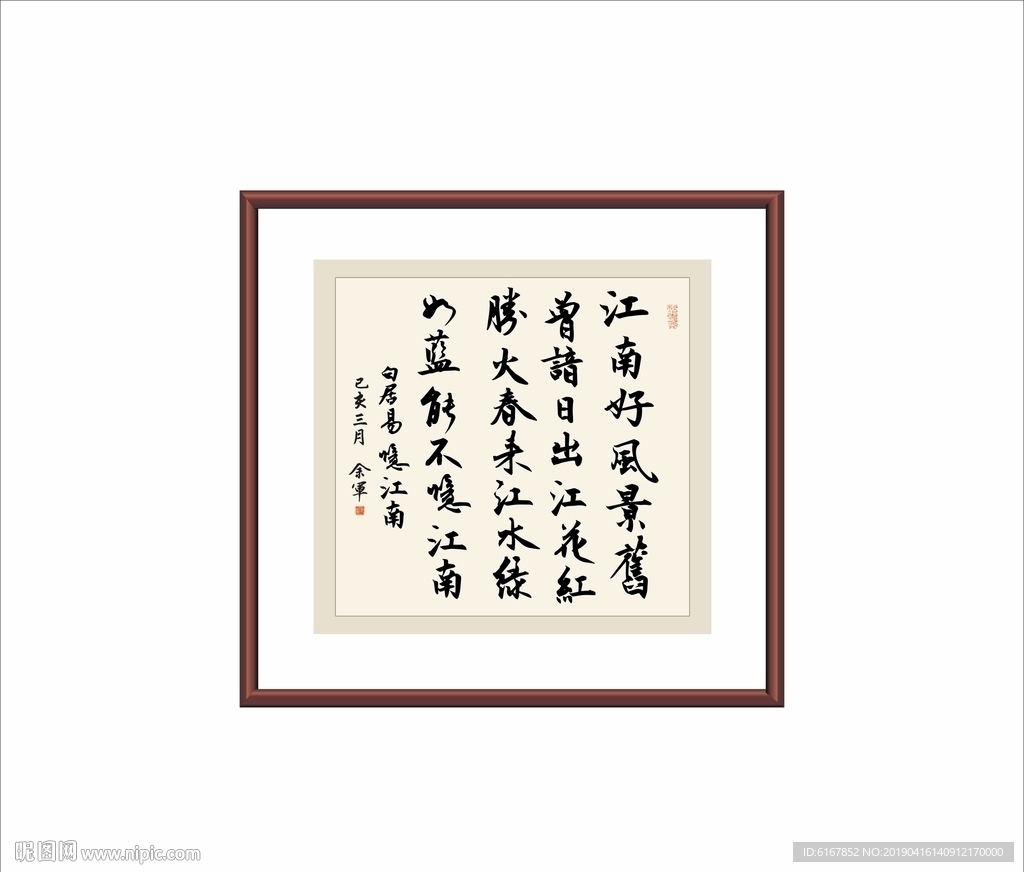 江南好風景舊
曾諳日出江花紅
勝火春来江水緑
如藍能不憶江南
白居易憶江南
己亥三月 余軍
昵图网 www.nipic.com
ID:6167852 NO:20190416140912170000